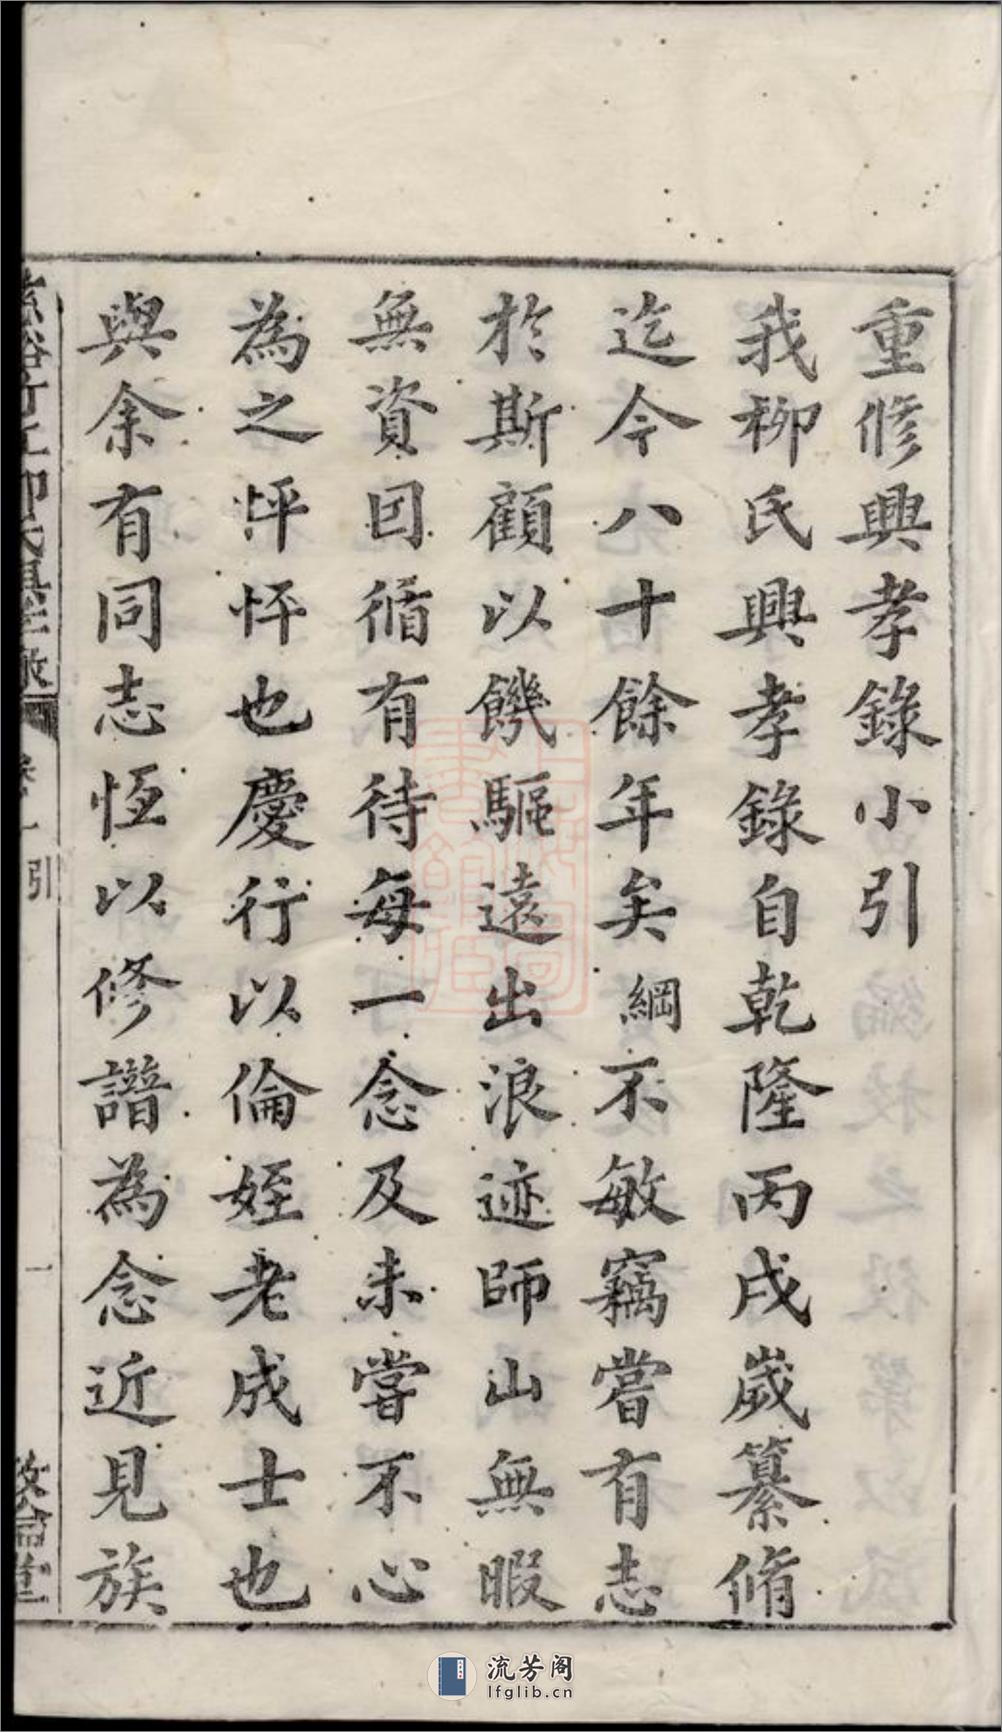 重修興孝錄小引
我柳氏興孝錄自乾隆丙戌歲纂脩
迄今八十餘年矣綱不敏竊嘗有志
於斯顧以饑驅遠出浪迹師山無暇
無資因循有待每一念及未嘗不心
為之怦怦也慶行以倫姪老成士也
與余有同志恆以修譜為念近見族
引
一
流芳阁
lfglib.cn